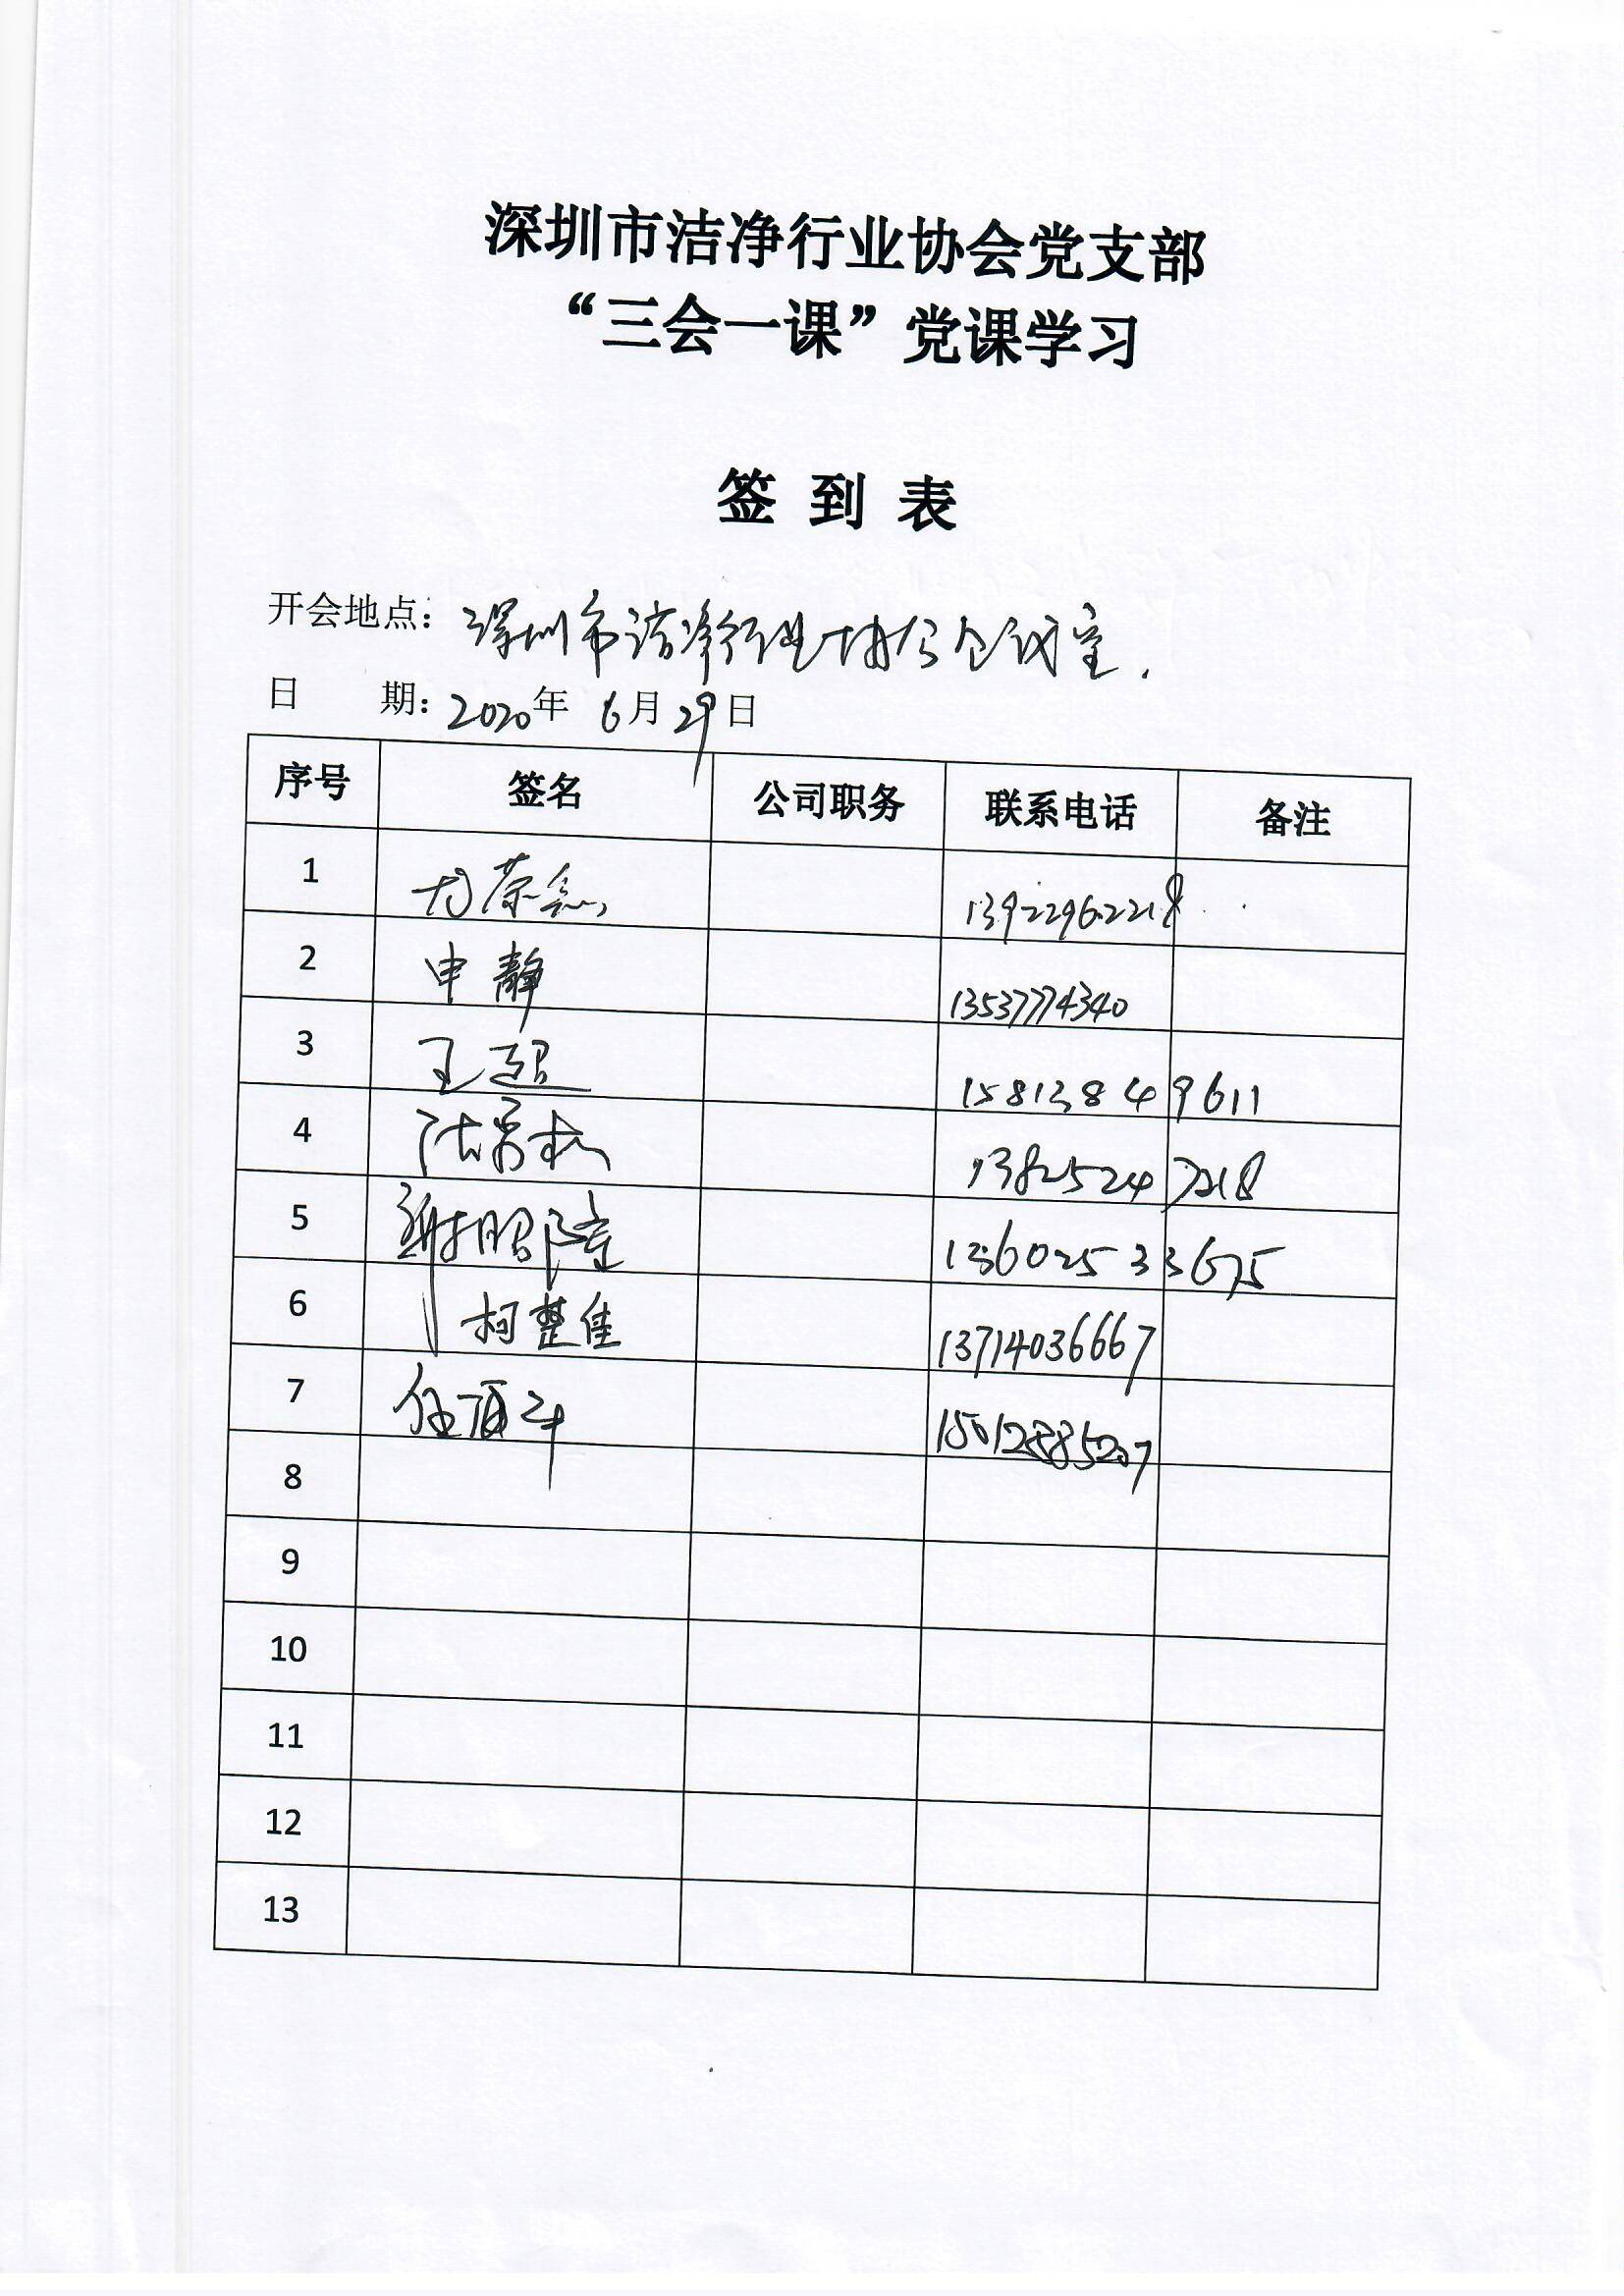 深圳市洁净行业协会党支部
“三会一课”党课学习
签 到 表
开会地点：深圳市洁净行业协会会议室.
日 期：2020年 6月29日
序号 签名 公司职务 联系电话 备注
1 13922962218
2 申静 13537774340
3 王超 15813849611
4 13825247218
5 谢昭隆 13602533675
6 柯整佳 13714036667
7 任酒平 15012885207
8
9
10
11
12
13